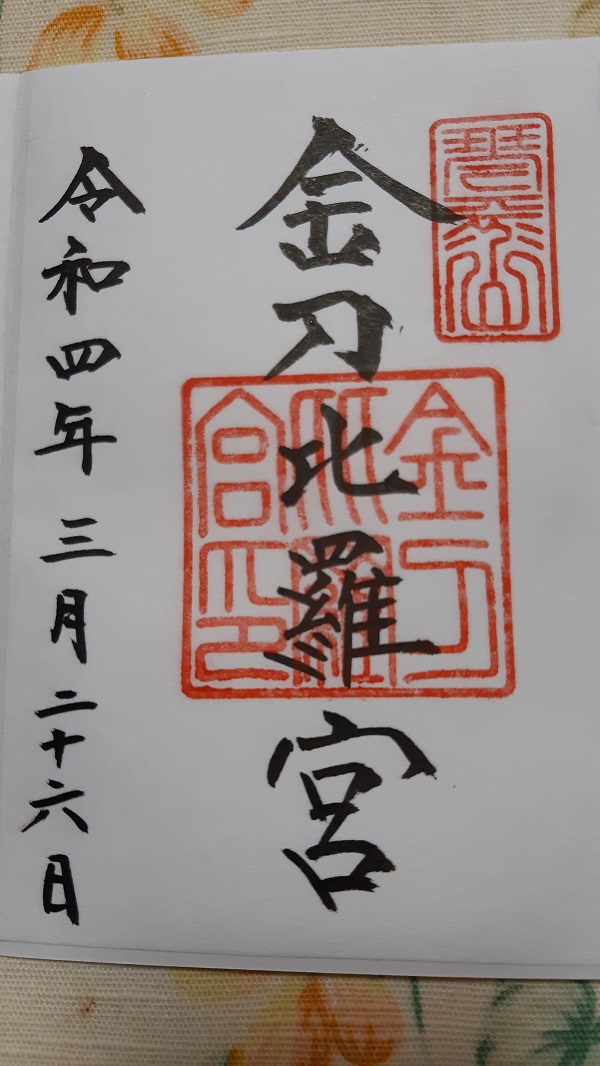 金刀比羅宮
金刀
比羅
宮印
令和四年三月二十六日